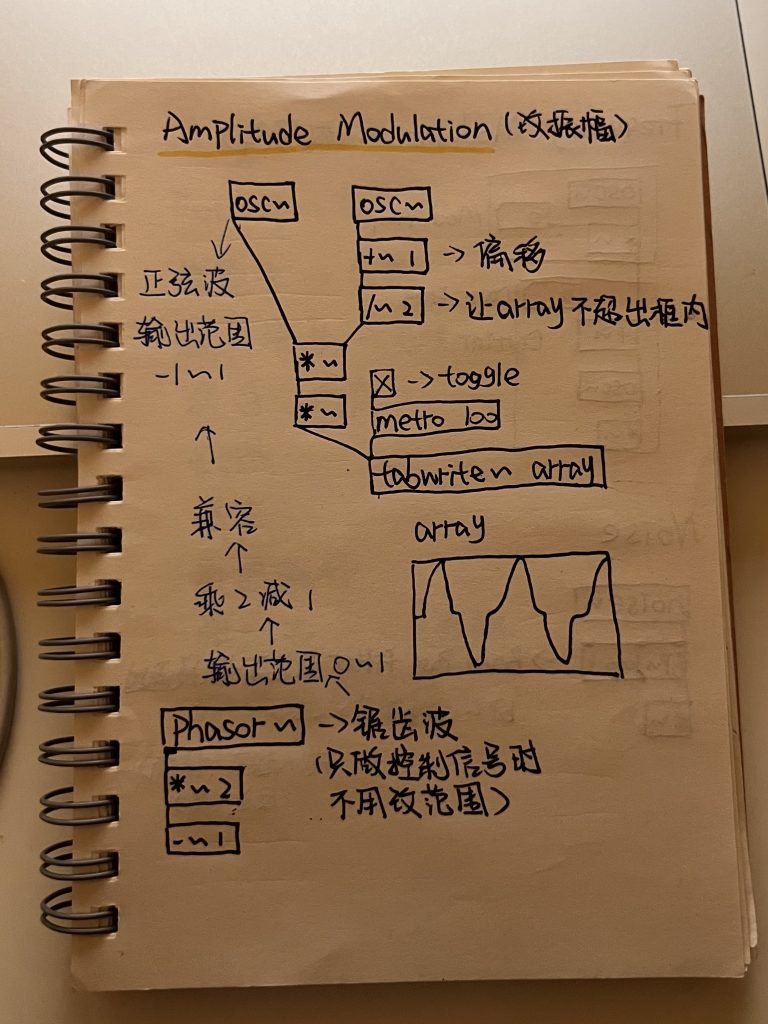 Amplitude Modulation (改振幅)
osc~ osc~
+~ 1 → 偏移
/~ 2 → 让array不超出框内
正弦波
输出范围
-1~1
*~
*~
X → toggle
metro 100
tabwrite~ array
array
兼容
乘2减1
输出范围0~1
Phasor~ → 锯齿波
(只做控制信号时
不用改范围)
*~2
-~1